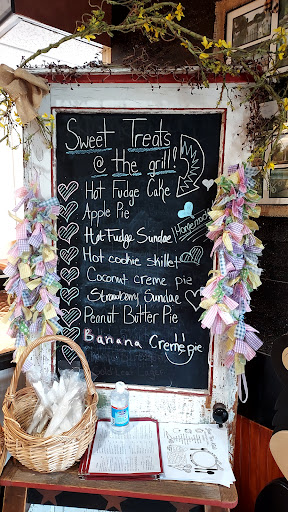 Sweet Treats
@ the grill!
Hot Fudge Cake
Apple Pie
Hot Fudge Sundae
Homemade
Hot cookie skillet
Coconut creme pie
Strawberry Sundae
Peanut Butter Pie
Banana Creme pie